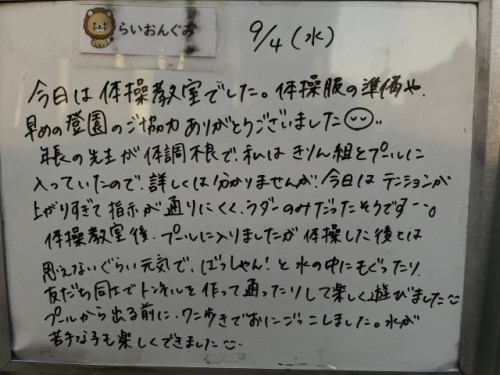 らいおんぐみ
9/4(水)
今日は体操教室でした。体操服の準備や、
早めの登園のご協力ありがとうございました
年長の先生が体調不良で、私はきりん組とプールに
入っていたので、詳しくは分かりませんが、今日はテンションが
上がりすぎて指示が通りにくく、ラダーのみだったそうです…。
体操教室後、プールに入りましたが体操した後とは
思えないぐらい元気で、ばっしゃん!と水の中にもぐったり、
友だち同士でトンネルを作って通ったりして楽しく遊びました
プールから出る前に、ワニ歩きでおにごっこしました。水が
苦手な子も楽しくできました